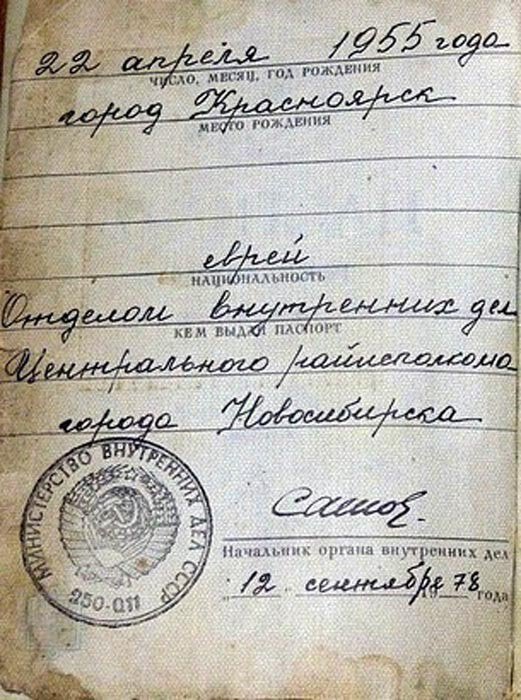 22 апреля 1955 года
ЧИСЛО, МЕСЯЦ, ГОД РОЖДЕНИЯ
город Красноярск
МЕСТО РОЖДЕНИЯ
еврей
НАЦИОНАЛЬНОСТЬ
Отделом внутренних дел
КЕМ ВЫДАН ПАСПОРТ
Центрального райисполкома
города Новосибирска
МИНИСТЕРСТВО ВНУТРЕННИХ ДЕЛ СССР
250-011
Начальник органа внутренних дел
„12 сентября 78 года